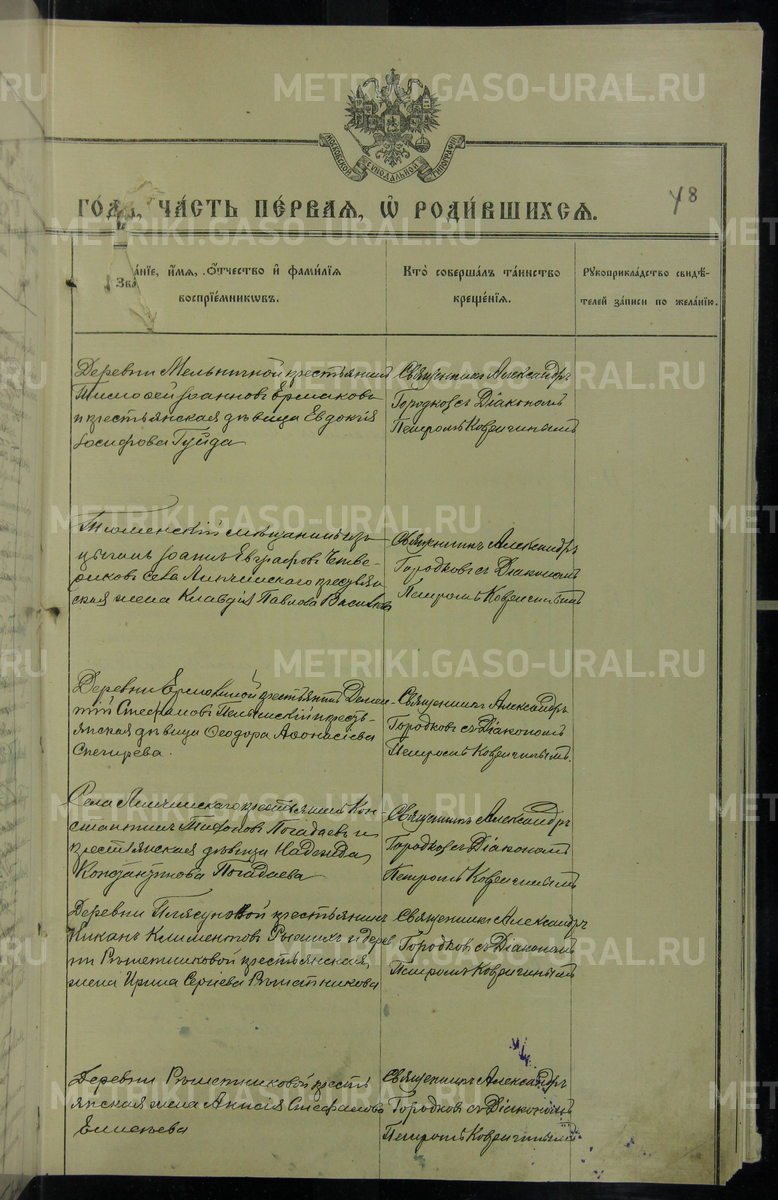 METRIKI.GASO-URAL.RU
МОСКОВСКОЙ СѴНОДАЛЬНОЙ ТИПОГРАФІИ
ГО́ДА, ЧА́СТЬ ПЕ́РВАЯ, Ѡ҆ РОДИ́ВШИХСЯ.
48
Зва́ніе, и҆́мя, ѻ҆́тчество и҆ фами́лія
воспріе́мниковъ.
Кто̀ соверша́лъ та́инство
креще́нія.
Рꙋкоприкла́дство свидѣ́-
телей за́писи по жела́нію.
Деревни Мельничной крестьянинъ
Тимофей Іоанновъ Ермаковъ
и крестьянская дѣвица Евдокія
Іосифова Гуйда
Священникъ Александръ
Городковъ съ Діакономъ
Петромъ Ковригинымъ
Тюменскій мѣщанинъ изъ
цыганъ Іоаннъ Евграфовъ
села Липчинскаго крестьян
ская жена Клавдія Павлова
Священникъ Александръ
Городковъ съ Діакономъ
Петромъ Ковригинымъ
Деревни крестьянинъ
Стефановъ и кресть-
янская дѣвица Ѳеодора Аѳонасіева
Снегирева.
Священникъ Александръ
Городковъ съ Діакономъ
Петромъ Ковригинымъ.
Села Липчинскаго крестьянинъ Кон-
стантинъ Погадаевъ и
крестьянская дѣвица Надежда
Константинова Погадаева
Священникъ Александръ
Городковъ съ Діакономъ
Петромъ Ковригинымъ
Деревни Плясуновой крестьянинъ
Климентовъ и дерев
ни Рѣшетниковой крестьянская
жена Ирина Сергіева Рѣшетникова
Священникъ Александръ
Городковъ съ Діакономъ
Петромъ Ковригинымъ
Деревни Рѣшетниковой кресть
янская жена Анисія Стефанова
Священникъ Александръ
Городковъ съ Діакономъ
Петромъ Ковригинымъ